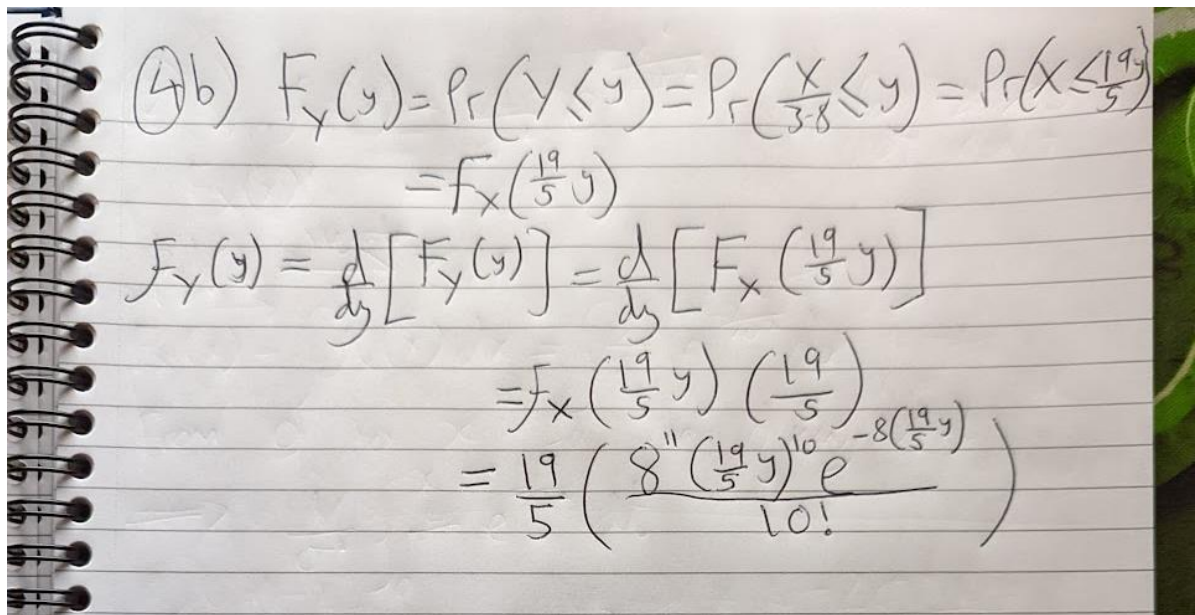 ④b) F_Y(y) = Pr(Y ≤ y) = Pr(X/3.8 ≤ y) = Pr(X ≤ 19y/5)
= F_X(19/5 y)
f_Y(y) = d/dy [F_Y(y)] = d/dy [F_X(19/5 y)]
= f_X(19/5 y) (19/5)
= 19/5 (8^11 (19/5 y)^10 e^{-8(19/5 y)} / 10!)